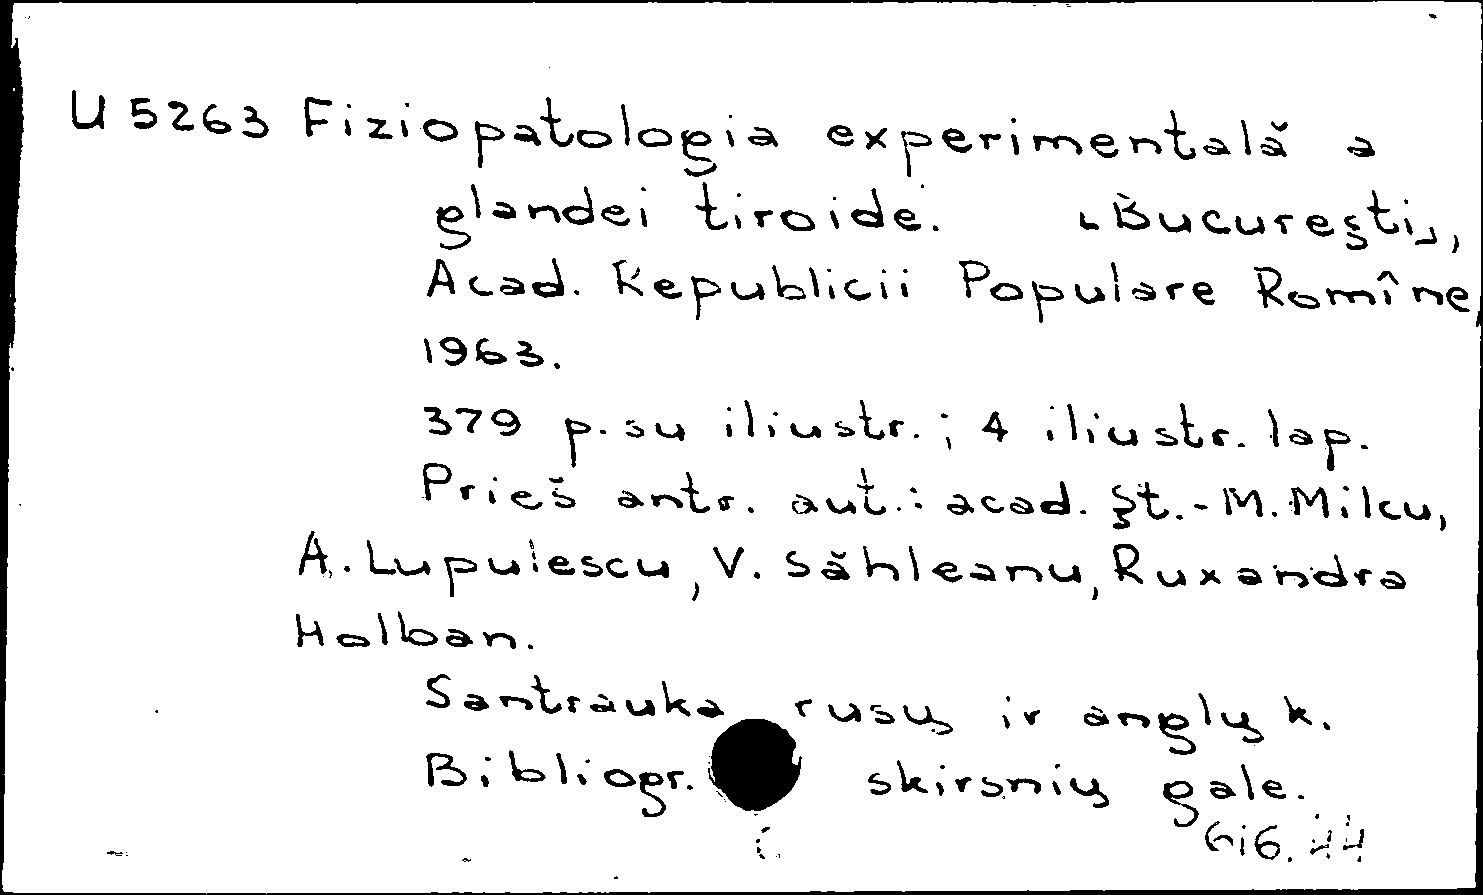 U 5263 Fiziopatologia experimentală a
glandei tiroide. [Bucureşti],
Acad. Republicii Populare Romîne,
1963.
379 p. su iliustr.; 4 iliustr. lap.
Prieš antr. aut.: acad. Şt.-M. Milcu,
A. Lupulescu, V. Săhleanu, Ruxandra
Holban.
Santrauka rusų ir anglų k.
Bibliogr. skirsnių gale.
616.44